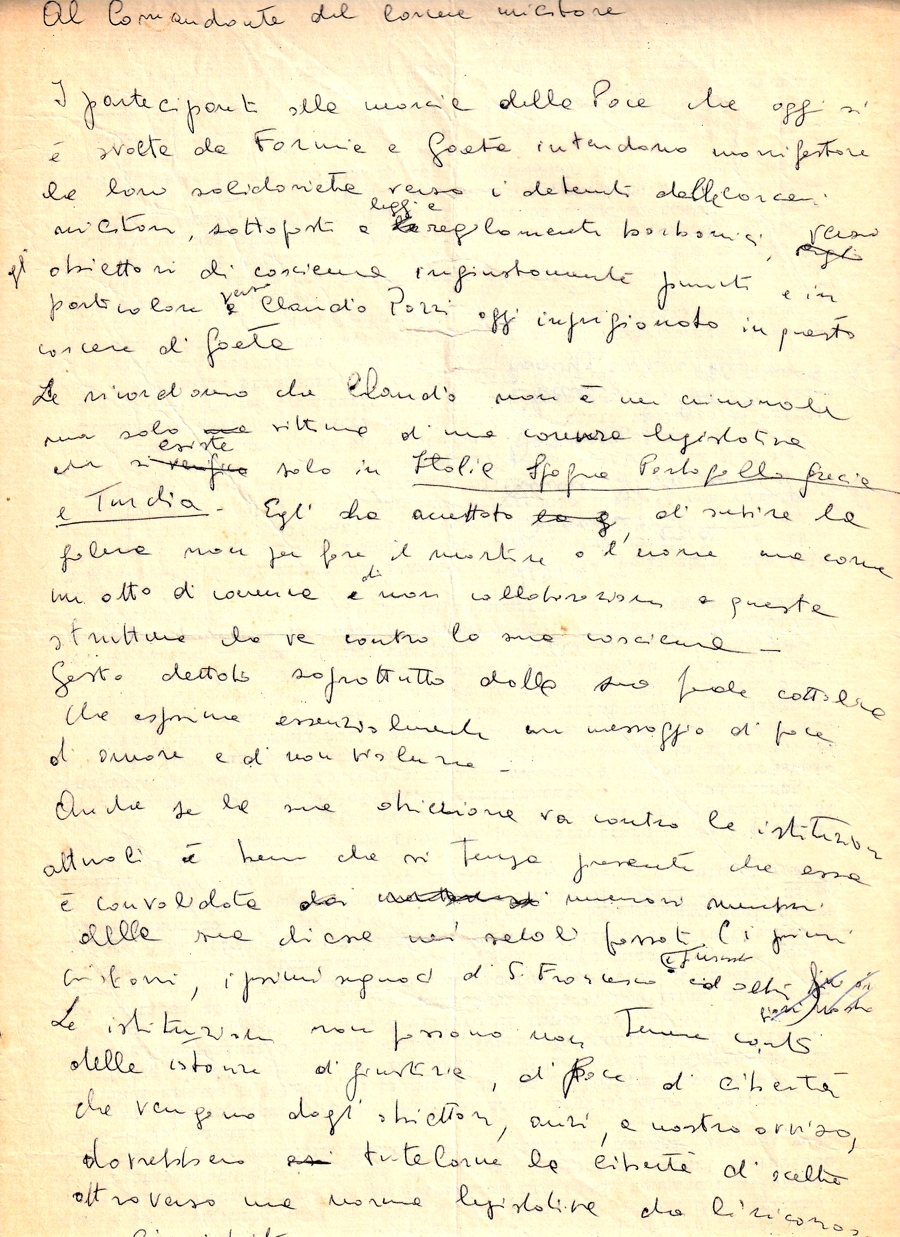 Al Comandante del carcere militare
I partecipanti alla marcia della Pace che oggi si
è svolta da Formia a Gaeta intendono manifestare
la loro solidarietà verso i detenuti delle carceri
militari, sottoposti a leggi e regolamenti borbonici, verso
gli obiettori di coscienza ingiustamente puniti e in
particolare verso Claudio Pozzi oggi imprigionato in questo
carcere di Gaeta
Le ricordiamo che Claudio non è un criminale
ma solo vittima di una carenza legislativa
che esiste solo in Italia Spagna Portogallo Grecia
e Turchia. Egli ha accettato di subire la
galera non per fare il martire o l'eroe ma come
un atto di coerenza e di non collaborazione a questa
struttura che va contro la sua coscienza –
Gesto dettato soprattutto dalla sua fede cattolica
che esprime essenzialmente un messaggio di pace
di amore e di non violenza –
Anche se la sua obiezione va contro le istituzioni
attuali è bene che si tenga presente che essa
è convalidata numerosi membri
della sua chiesa nei secoli passati (i primi
cristiani, i primi seguaci di S. Francesco ed altri
Le istituzioni non possono non tenere conto
delle istanze di giustizia, di pace di libertà
che vengono dagli obiettori, anzi, a nostro avviso,
dovrebbero tutelarne la libertà di scelta
attraverso una norma legislativa che li ricono